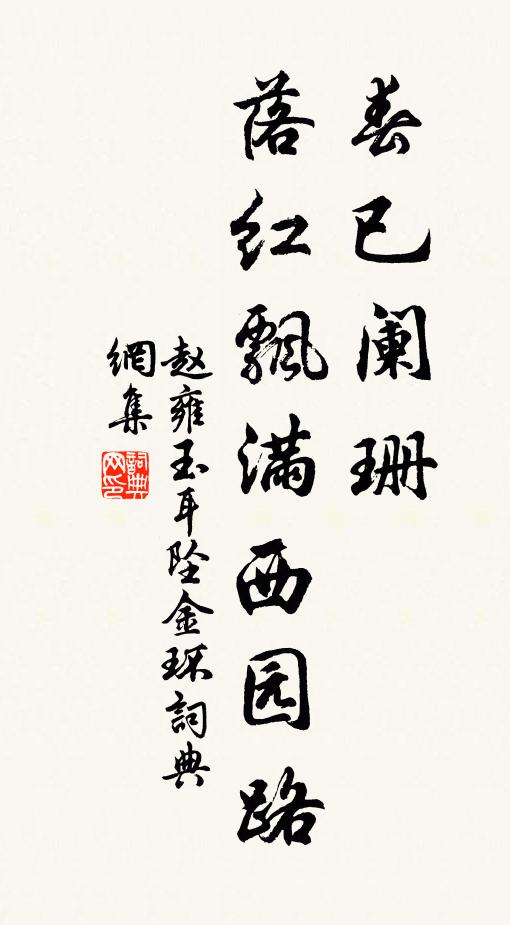 春已阑珊
落红飘满西园路
赵雍玉耳坠金环詞典
網集
詞典
网印